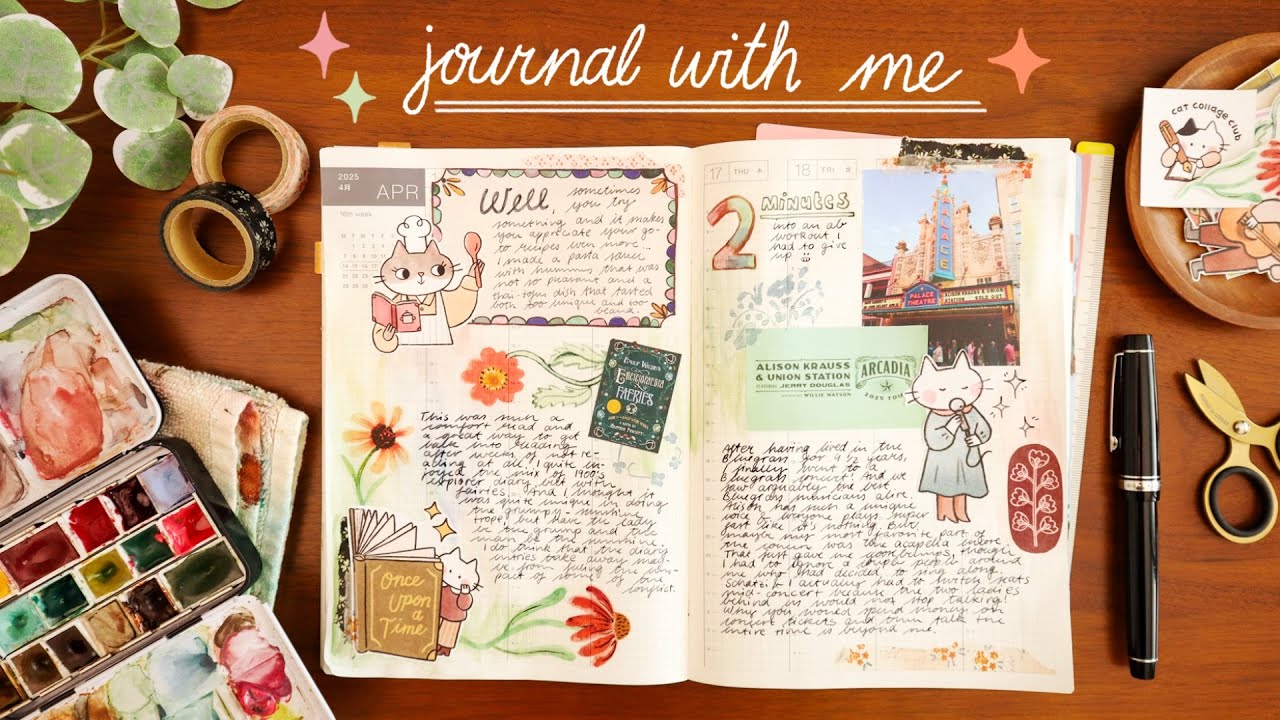 journal with me
cat collage club
2025
4月
APR
16th week
Well, sometimes
you try
something and it makes
you appreciate your go-
to recipes even more...
I made a pasta sauce
with hummus that was
not so pleasant and a
that tasted
both too unique and too
bland.
EMILY WILDE'S
ENCYCLOPAEDIA
OF
FAERIES
This was such a
comfort read and
a great way to get
back into reading
after weeks of not re-
ading at all. I quite en-
joyed the mix of 1900's
explorer diary but with
fairies. And I thought it
was quite unique in doing
the grumpy-sunshine
trope but have the lady
be the grump and the
man be the sunshine.
I do think that the diary
entries take away me
from feeling the im-
pact of some of the
conflict.
Once
Upon
a
Time
17 THU 木
18 FRI 金
2 Minutes
into an ab
workout I
had to give
up
PALACE
PALACE
THEATRE
ALISON KRAUSS
SOLD OUT
ALISON KRAUSS
& UNION STATION
FEATURING JERRY DOUGLAS
WILLIE WATSON
ARCADIA
2025 TOUR
After having lived in the
Bluegrass for 9 1/2 years,
I finally went to a
Bluegrass concert! And we
saw arguably the best
Bluegrass musicians alive.
Alison has such a unique
voice & everyone plays super
fast like it's nothing. But,
maybe my most favorite part of
the concert was the acapella encore.
That just gave me goosebumps, though
I had to ignore a couple people around
me who had decided to sing along.
Schatzi & I actually had to switch seats
mid-concert because the two ladies
behind us would not stop talking!
Why you would spend money on
concert tickets and then talk the
entire time is beyond me.